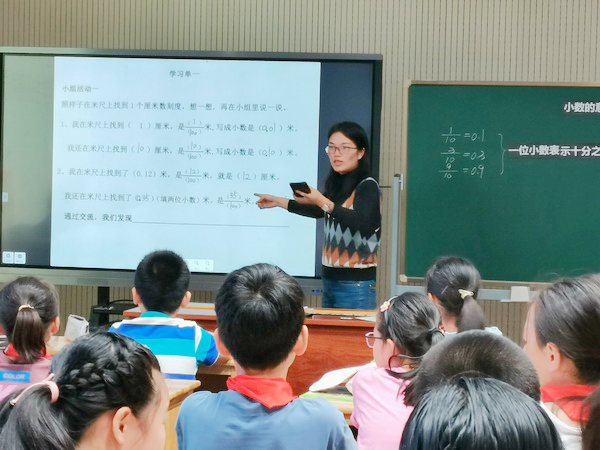 学习单一
小组活动一
照样子在米尺上找到1个厘米数刻度，想一想，再在小组里说一说。
1、我在米尺上找到（ 1 ）厘米，是（1/100）米，写成小数是（0.01）米。
我还在米尺上找到（10）厘米，是（10/100）米，写成小数是（0.10）米。
2、我在米尺上找到了（0.12）米，是（12/100）米，就是（12）厘米。
我还在米尺上找到了（0.35）（填两位小数）米，是（35/100）米，
通过交流，我们发现
小数的意
1/10=0.1
3/10=0.3
9/10=0.9
一位小数表示十分之
COLOR